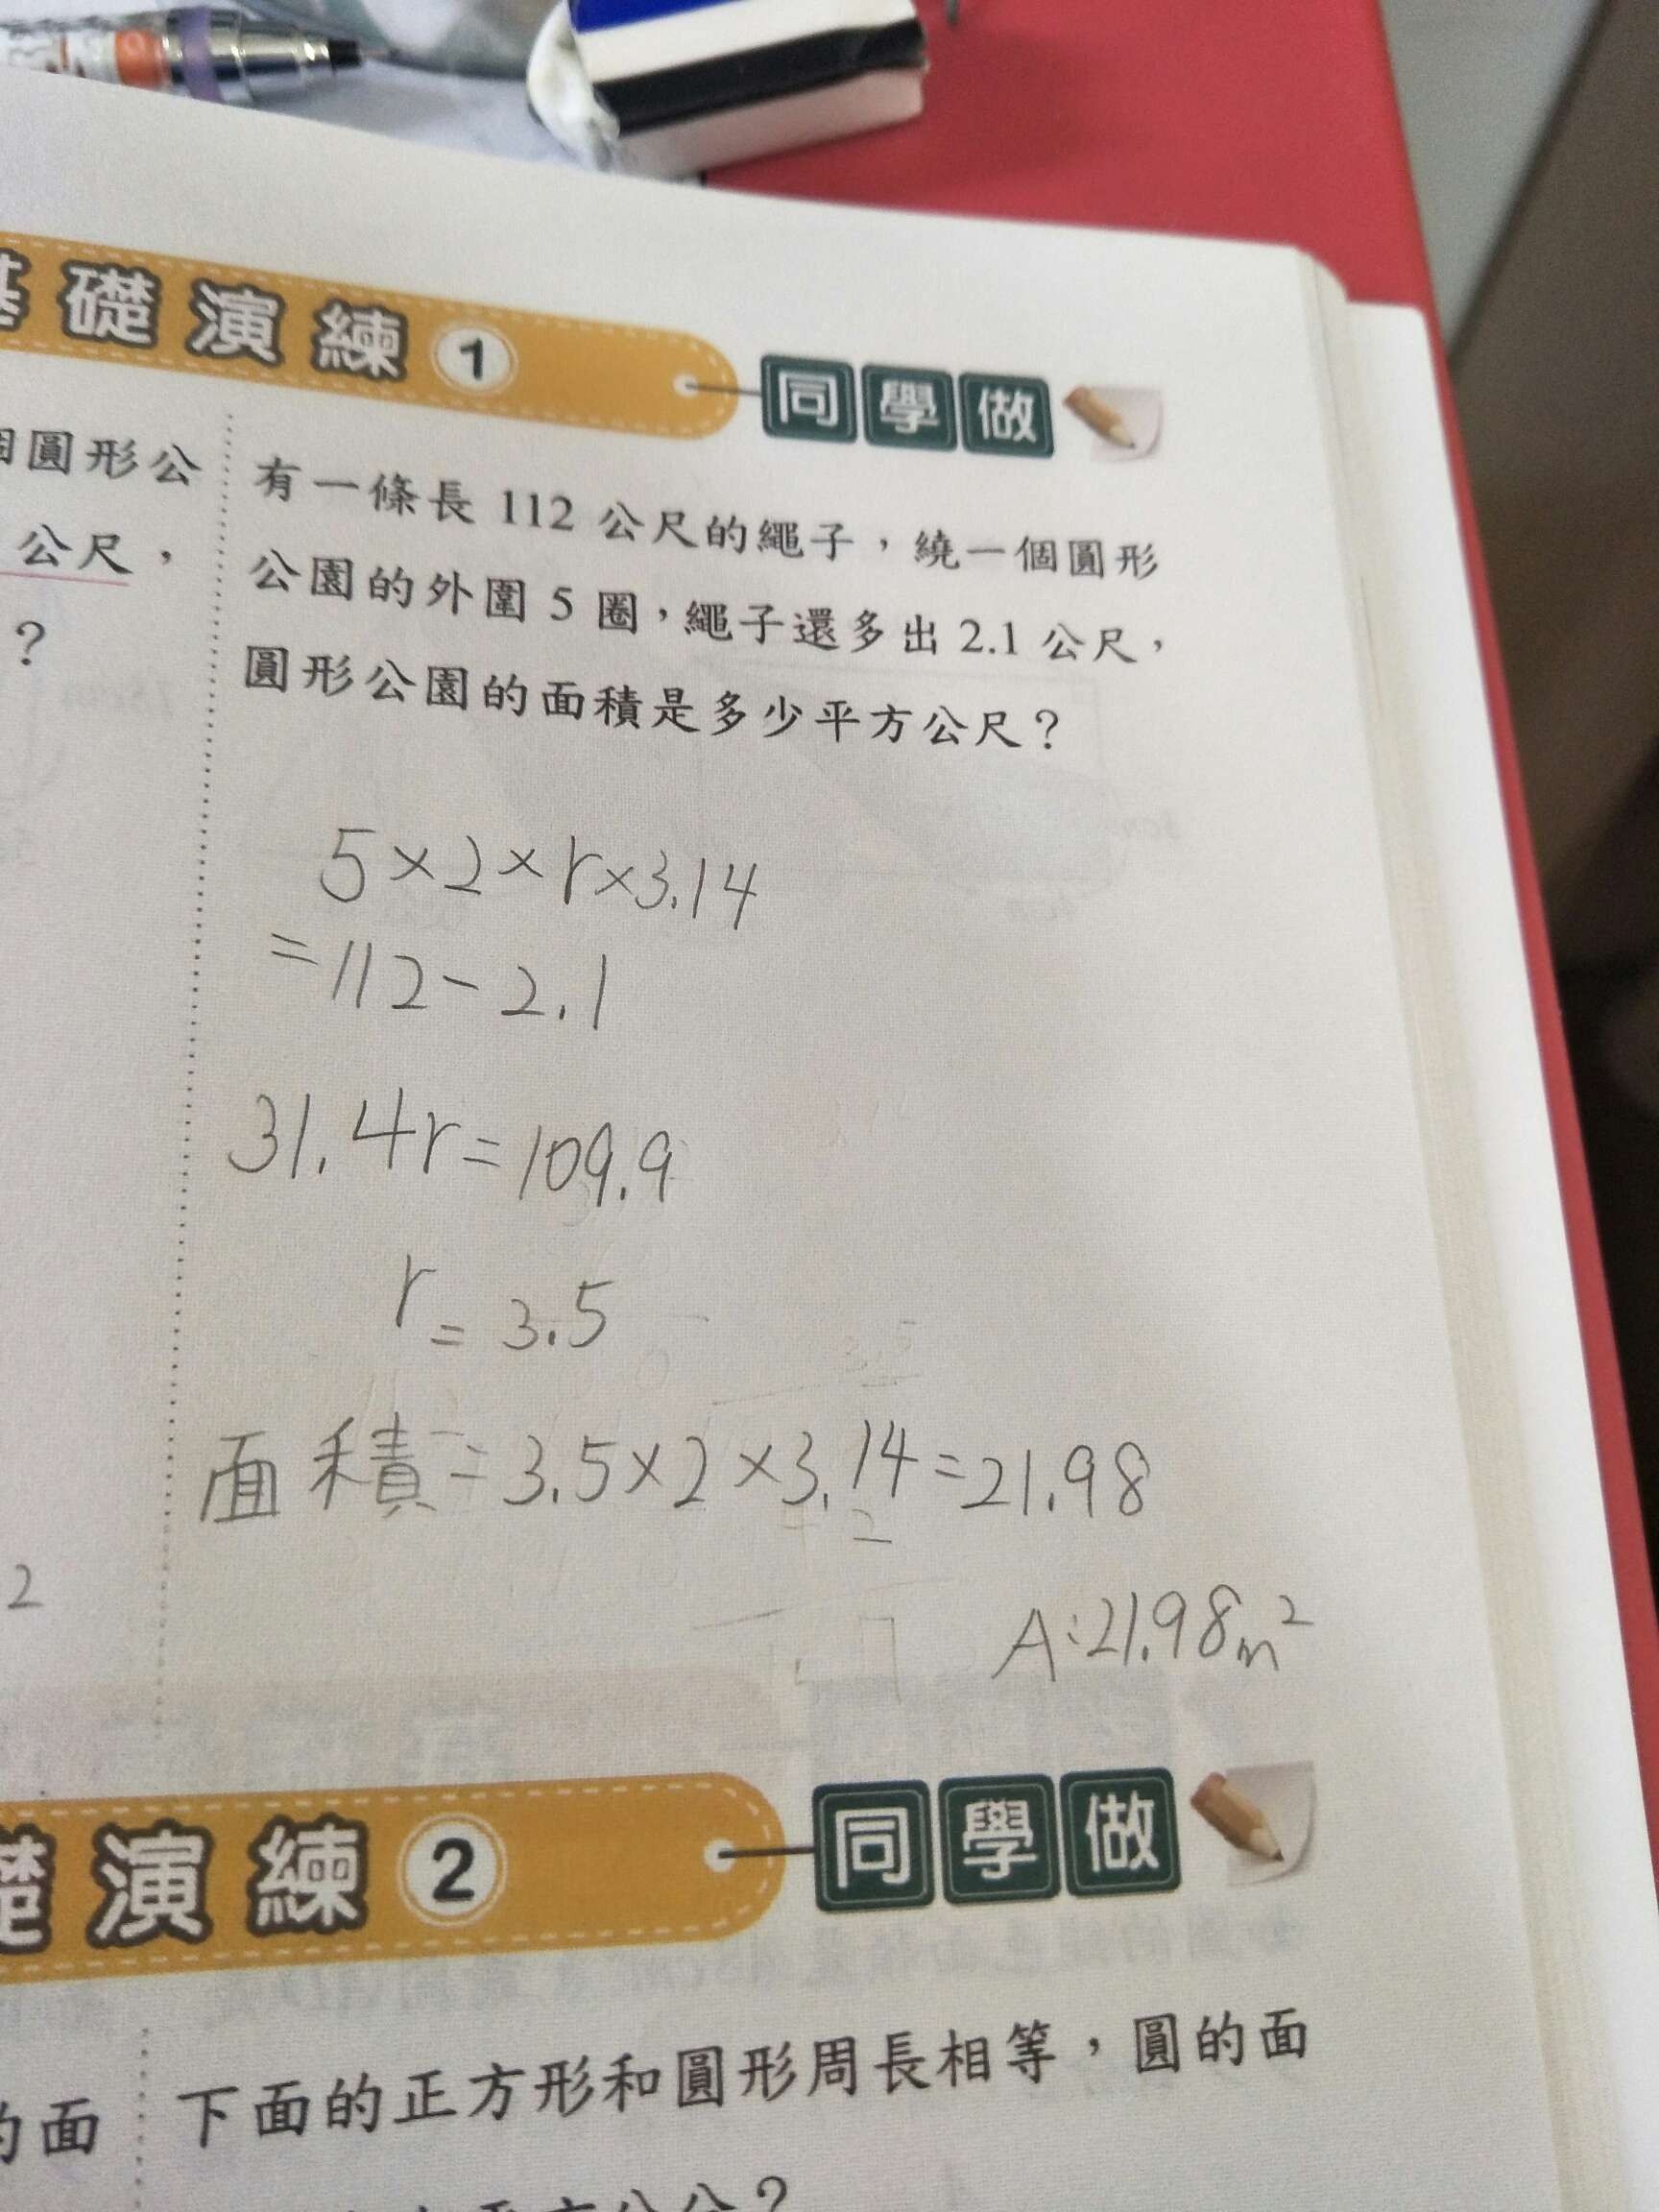 礎演練1 同學做
圓形公
公尺，
？
有一條長 112 公尺的繩子，繞一個圓形
公園的外圍 5 圈，繩子還多出 2.1 公尺，
圓形公園的面積是多少平方公尺？
5×2×r×3.14
=112-2.1
31.4r=109.9
r=3.5
面積=3.5×2×3.14=21.98
A:21.98m²
2
演練2 同學做
的面
下面的正方形和圓形周長相等，圓的面